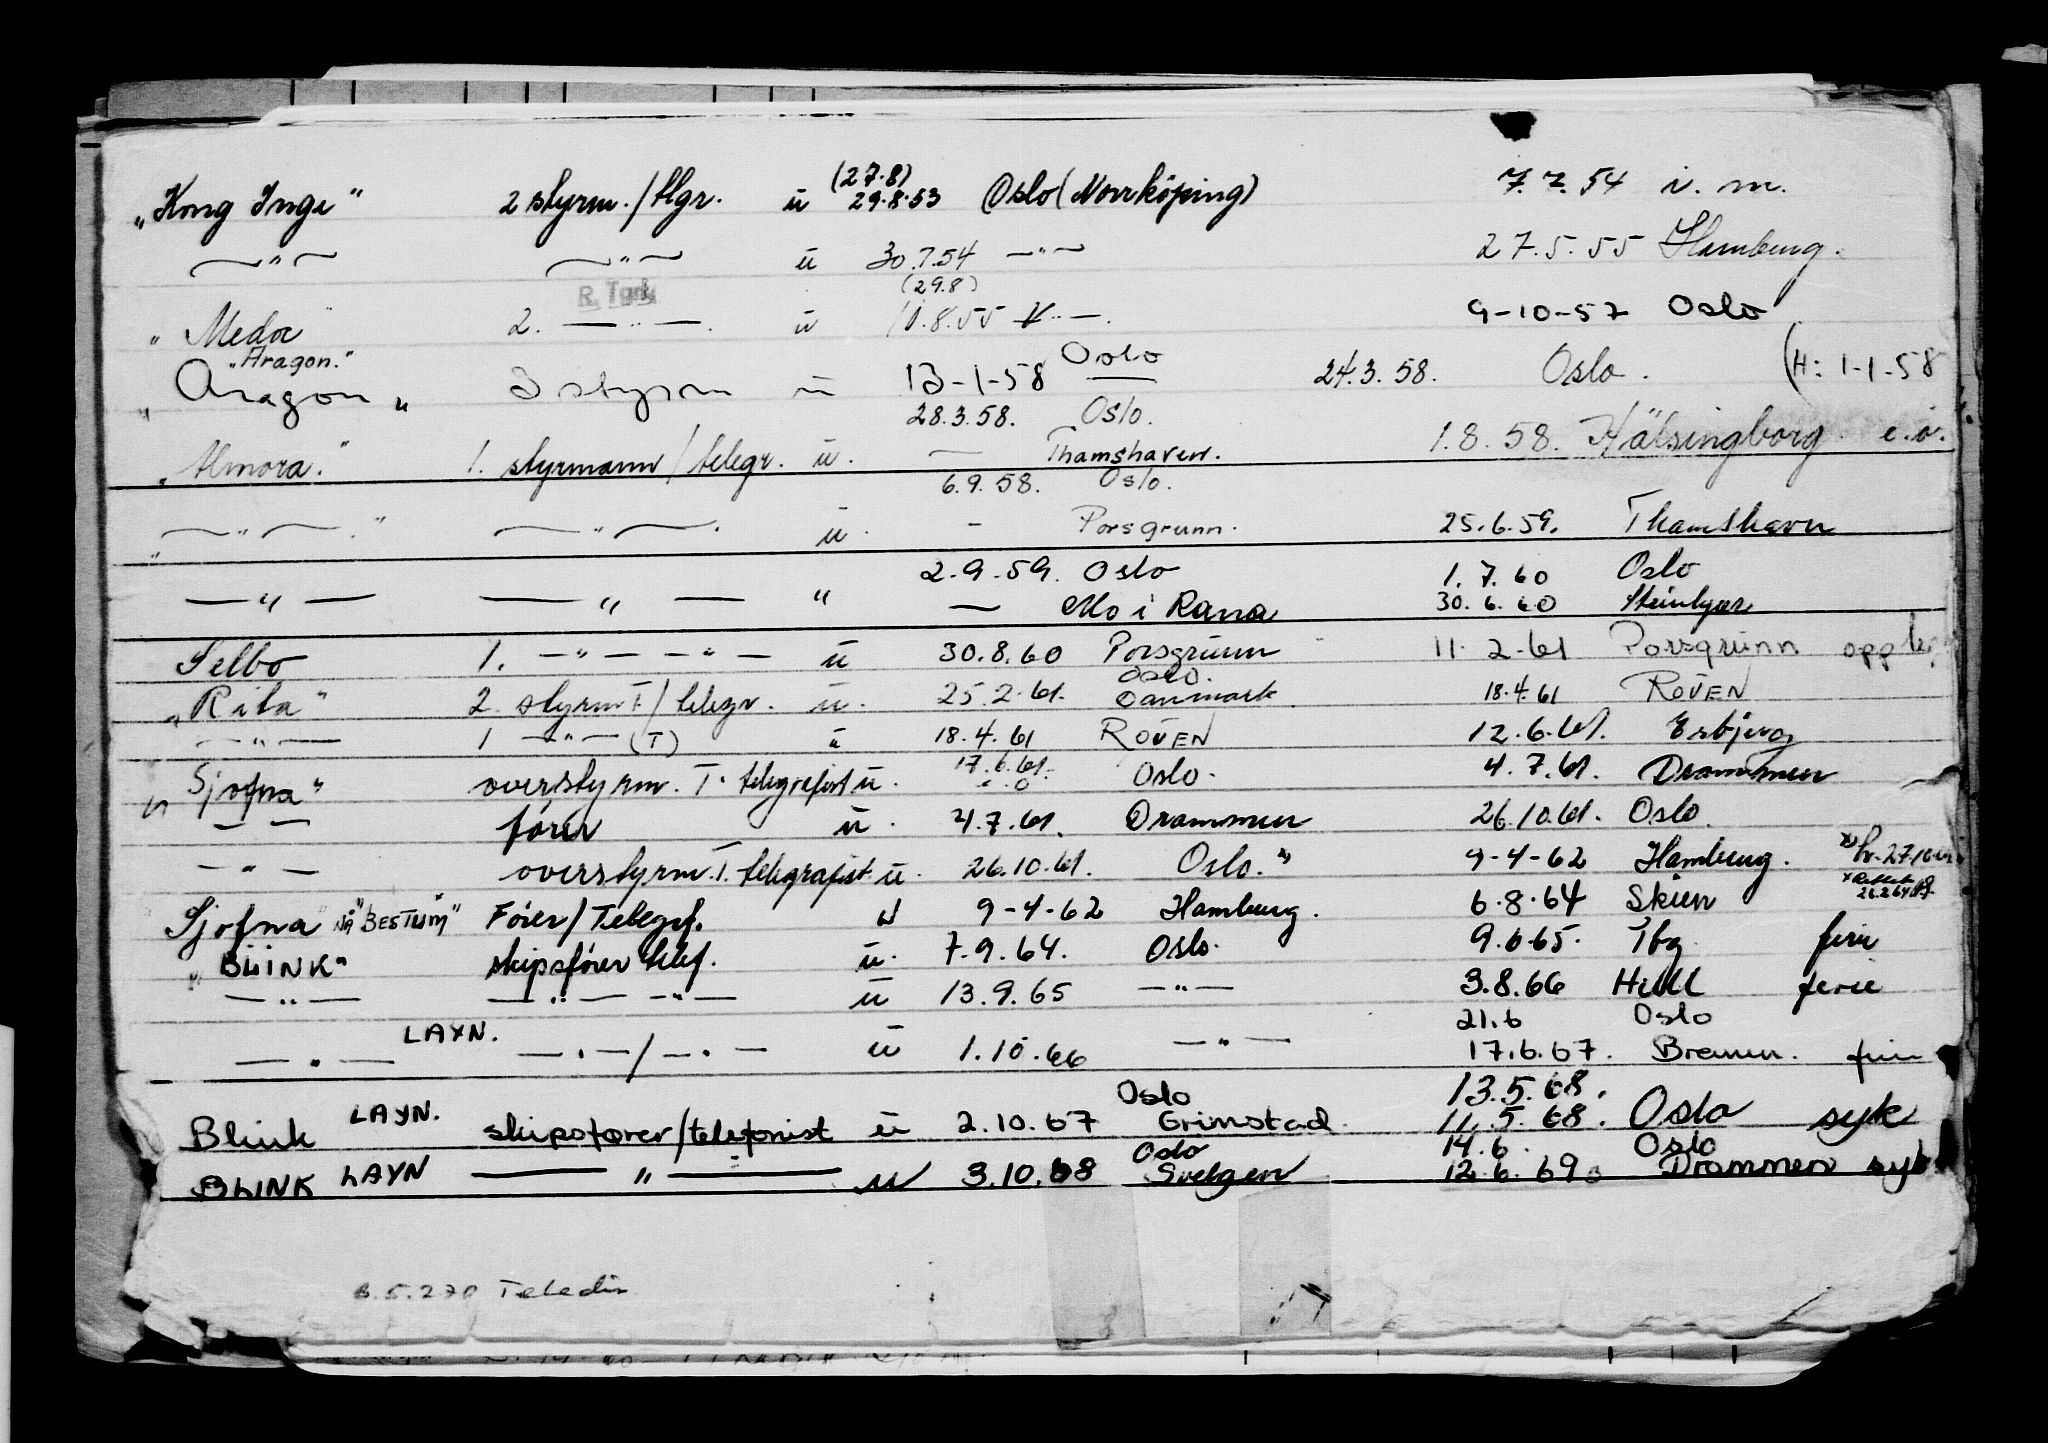 (27.8)
"Kong Inge" 2 styrm./tlgr. u 29.8.53 Oslo (Norrköping) 7.7.54 i.m.
—"— —"— u 30.7.54 —"— 27.5.55 Hamburg.
R. Tgrf. (29.8)
"Meda" 2. —"—. u 10.8.55 —"—. 9-10-57 Oslo
"Aragon." Oslo
"Aragon" 3 styrm u 13-1-58 24.3.58. Oslo. (H: 1-1-58
28.3.58. Oslo.
"Almora." 1. styrmann/telegr. u. — Thamshaven. 1.8.58. Hälsingborg e.o.
6.9.58. Oslo.
"—"—." —"—. u. - Porsgrunn. 25.6.59. Thamshavn
2.9.59. Oslo 1.7.60 Oslo
—"— —"— " — Mo i Rana 30.6.60 Steinkjer
Selbo 1. —"—"— u 30.8.60 Porsgrunn 11.2.61 Porsgrunn
Oslo.
"Rita" 2. styrm T/telegr. u. 25.2.61. Danmark. 18.4.61 ROUEN
—"— 1 —"—(T) u 18.4.61 ROUEN 12.6.61. Esbjerg
"Sjofna" overstyrm. T. telegrafist u. 17.6.61. Oslo. 4.7.61. Drammen
— — fører u. 4.7.61. Drammen 26.10.61. Oslo.
—"— overstyrm. T. telegrafist u. 26.10.61. Oslo. x) 9-4-62 Hamburg. x)
Sjofna "NÅ "BESTUM" Fører/Telegrf. u 9-4-62 Hamburg. 6.8.64 Skien
"BLINK" skipsfører telef. u. 7.9.64. Oslo. 9.6.65. Tbg ferie
—"— —"— —"— u 13.9.65 —"— 3.8.66 Hull ferie
21.6 Oslo
—"— LAYN. —"—/—"— u 1.10.66 —"— 17.6.67. Bremen. ferie
Oslo 13.5.68.
Blink LAYN. skipsfører/telefonist u 2.10.67 Grimstad. 11.5.68. Oslo syk
Oslo 14.6. Oslo
BLINK LAYN —"— u 3.10.68 Svelgen 12.6.69 Drammen syk
6.5.270 Teledir